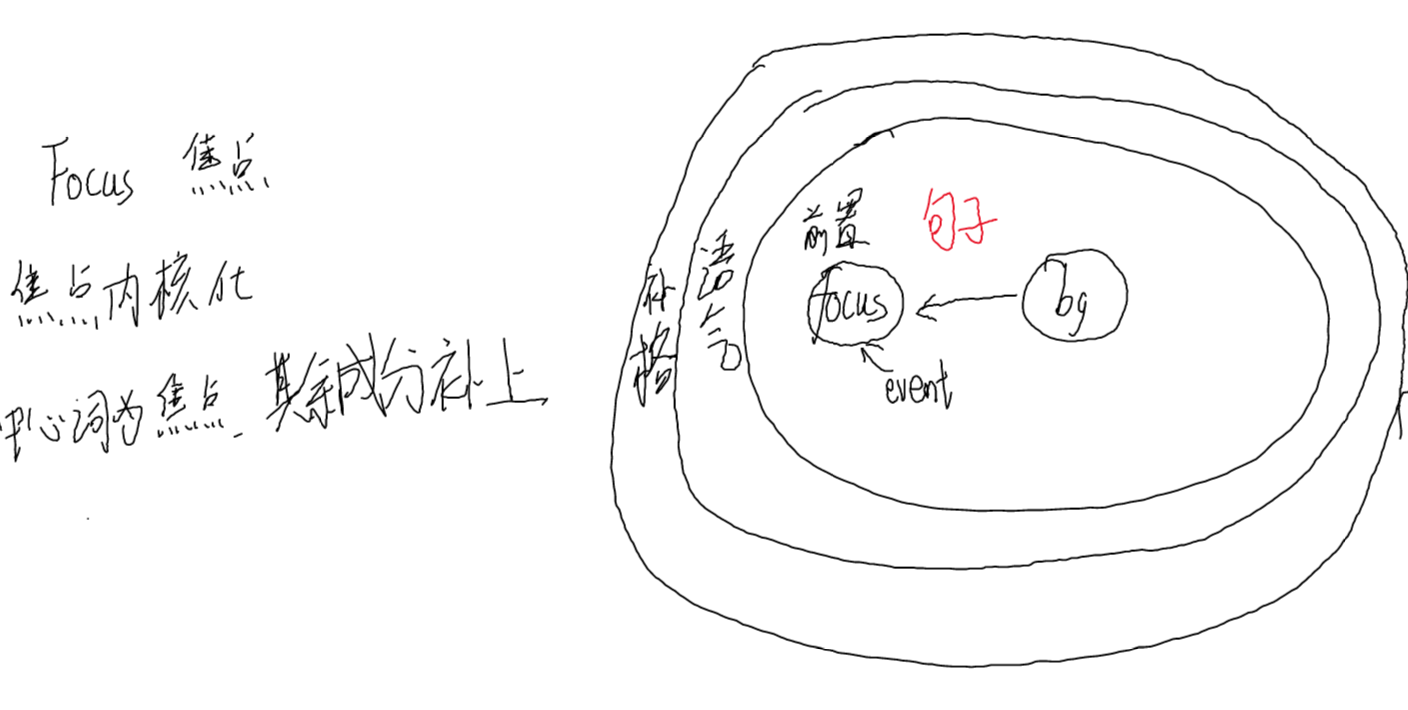 Focus 焦点
焦点内核化
中心词为焦点 其余成分补上
补格
语气
前置
句子
focus
bg
event